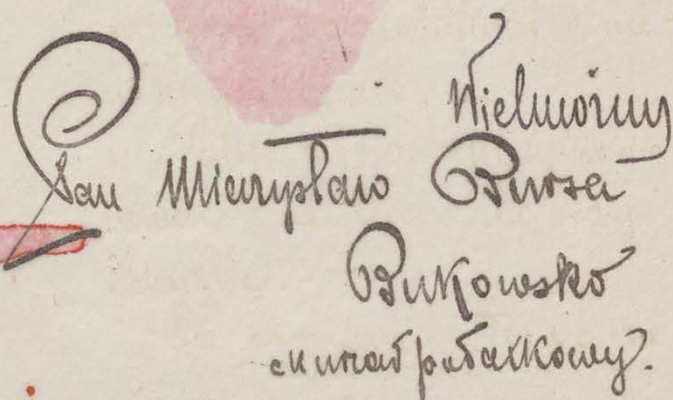 Wielmożny
Pan Mieczysław Bursa
Bukowsko
ck urząd podatkowy.